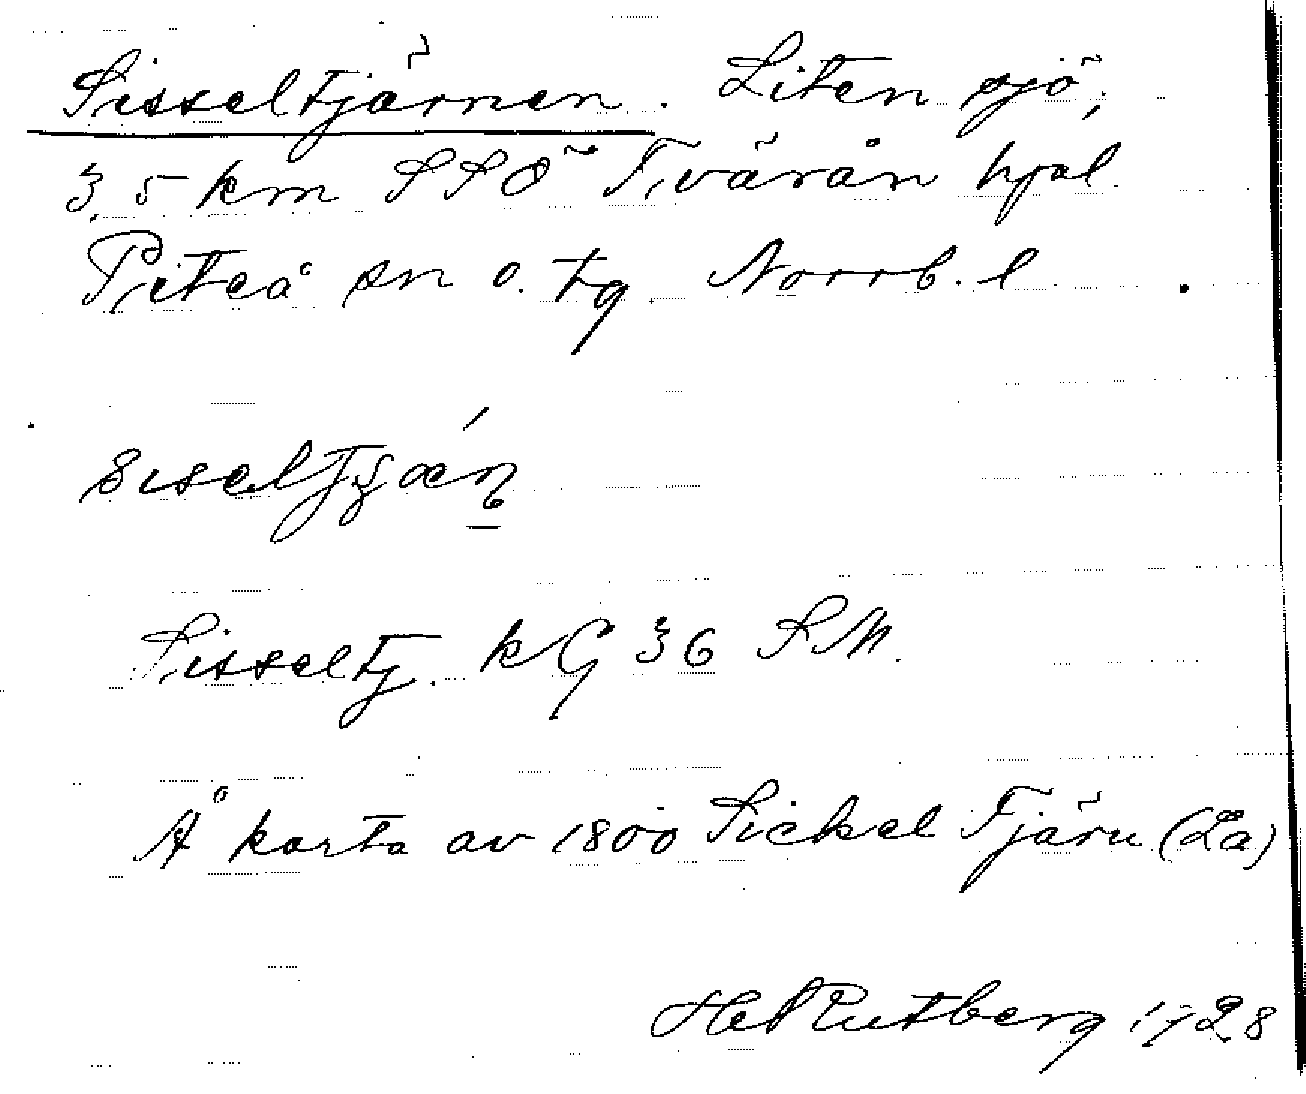 Sisseltjärnen. Liten sjö,
3,5 km SSÖ Tvärån hpl.
Piteå sn o. tg. Norrb. l.
Sisseltj. kG 36 SM.
Å karta av 1800 Sickel Tjärn (La)
Hel Rutberg 1928